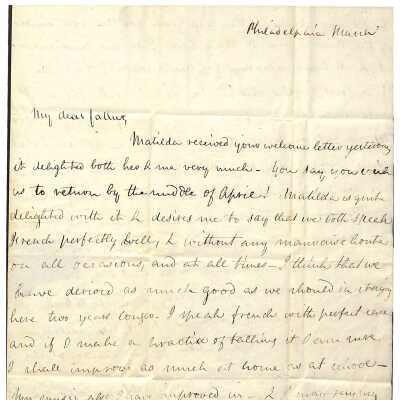 Philadelphia March
My dear father,
Matilda received your welcome letter yesterday
it delighted both her & me very much - You say you wish
us to return by the middle of April! Matilda is quite
delighted with it & desires me to say that we both speak
French perfectly well, & without any mauvaise honte
on all occasions, and at all times - I think that we
have derived as much good as we should in staying
here two years longer. I speak french with perfect ease
and if I make a practice of talking it I am sure
I shall improve as much at home as at school -
My music also I have improved in - & I